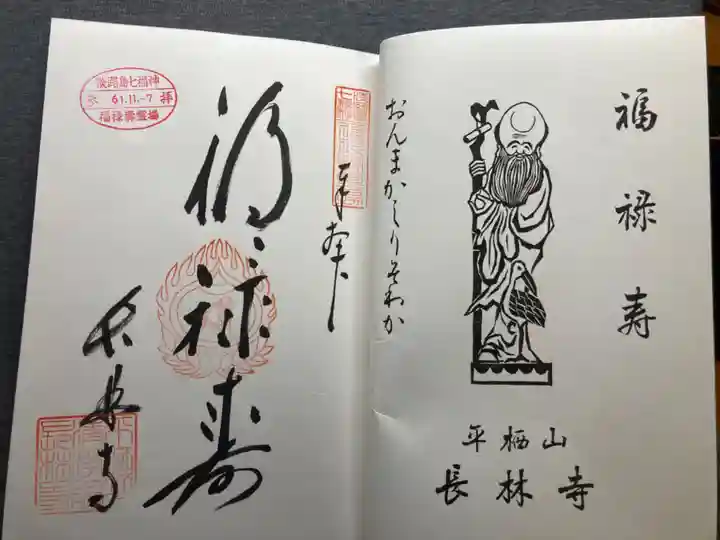 福禄寿
おんまかしりそわか
平栖山
長林寺
奉拝
福禄寿
長林寺
淡路島七福神
61.11.-7 拝
福禄寿霊場